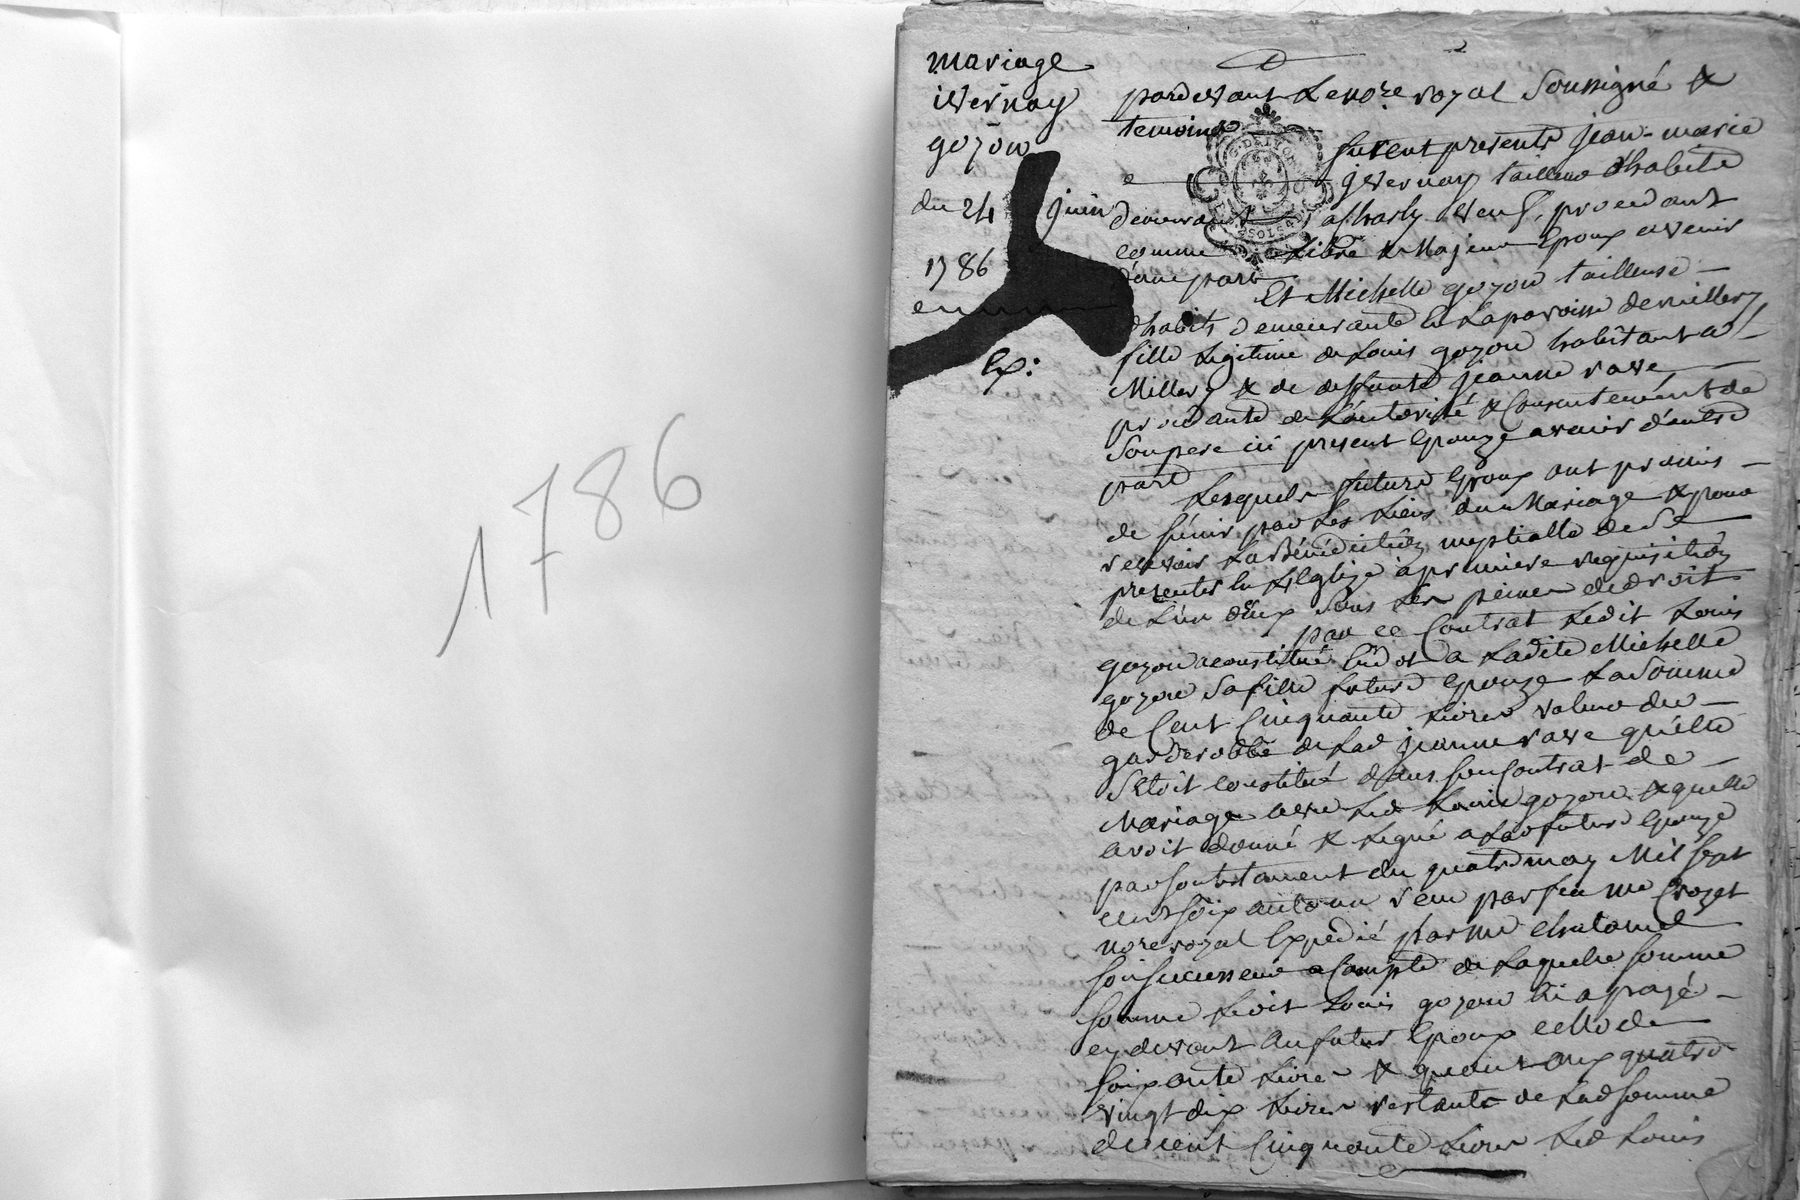 1786
mariage
ivernay
gozon
du 24 juin
1786
Ex:
2
pardevant Le nore royal Soussigné &
temoins
furent presents jean-marie
jvernay tailleur d'habits
demeurant a Charly veuf, procedant
comme Libre & Majeur Epoux avenir
d'une part
Et Michelle gozon tailleuse
d'habits demeurante En La paroisse de millery
fille Legitime de Louis gozon habitant a
Millery & de deffunte jeanne rave
procedante de L'autorité & Consentement de
Son pere ici present Epouze avenir d'autre
part
Lesquels futurs Epoux ont promis
de s'unir par Les Liens du Mariage & pour
recevoir La Bénédiction nuptialle de Se
presenter En L'Eglize à premiere requisition
de L'un d'Eux Sous Les peines de droit
par ce Contrat Ledit Louis
gozon a constitué En dot a Ladite Michelle
gozon Sa fille future Epouze La Somme
de Cent Cinquante Livres valeur du
garderobbe de Lad jeanne rave qu'elle
S'Etoit constitué dans son Contrat de
Mariage avec Led Louis gozon & quelle
avoit donné & Legué a Lad future Epouze
par son testament du quatre may Mil sept
cent soixante un reçu par feu me Crozet
nore royal Expedié par me Chatanel
son successeur a Compte de Laquelle somme
somme Ledit Louis gozon En a payé
cy devant Au futur Epoux celle de
soixante Livres & quant aux quatre
vingt dix Livres restante de Lad somme
de cent Cinquante Livres Led Louis